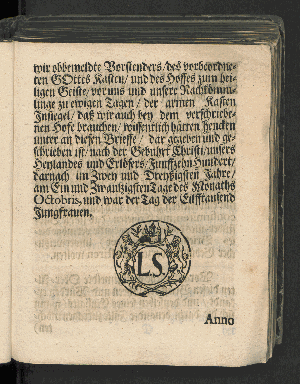 wir obbemeldte Vorstenders / des vorbeordne-
ten GOttes Kasten / und des Hoffes zum hei-
ligen Geiste / vor uns und unsere Nachkömm-
linge zu ewigen Tagen / der armen Kasten
Insiegel / daß wir auch bey dem verschriebe-
nen Hofe brauchen / wissentlich hätten hencken
unter an diesen Brieffe / dar gegeben und ge-
schrieben ist / nach der Gebuhrt Christi / unsers
Heylandes und Erlösers / Funffzehn Hundert /
darnach im Zwey und Dreyßigsten Jahre /
am Ein und Zwantzigsten Tage des Monaths
Octobris, und war der Tag der Eilfftausend
Jungfrauen.
L.S.
Anno